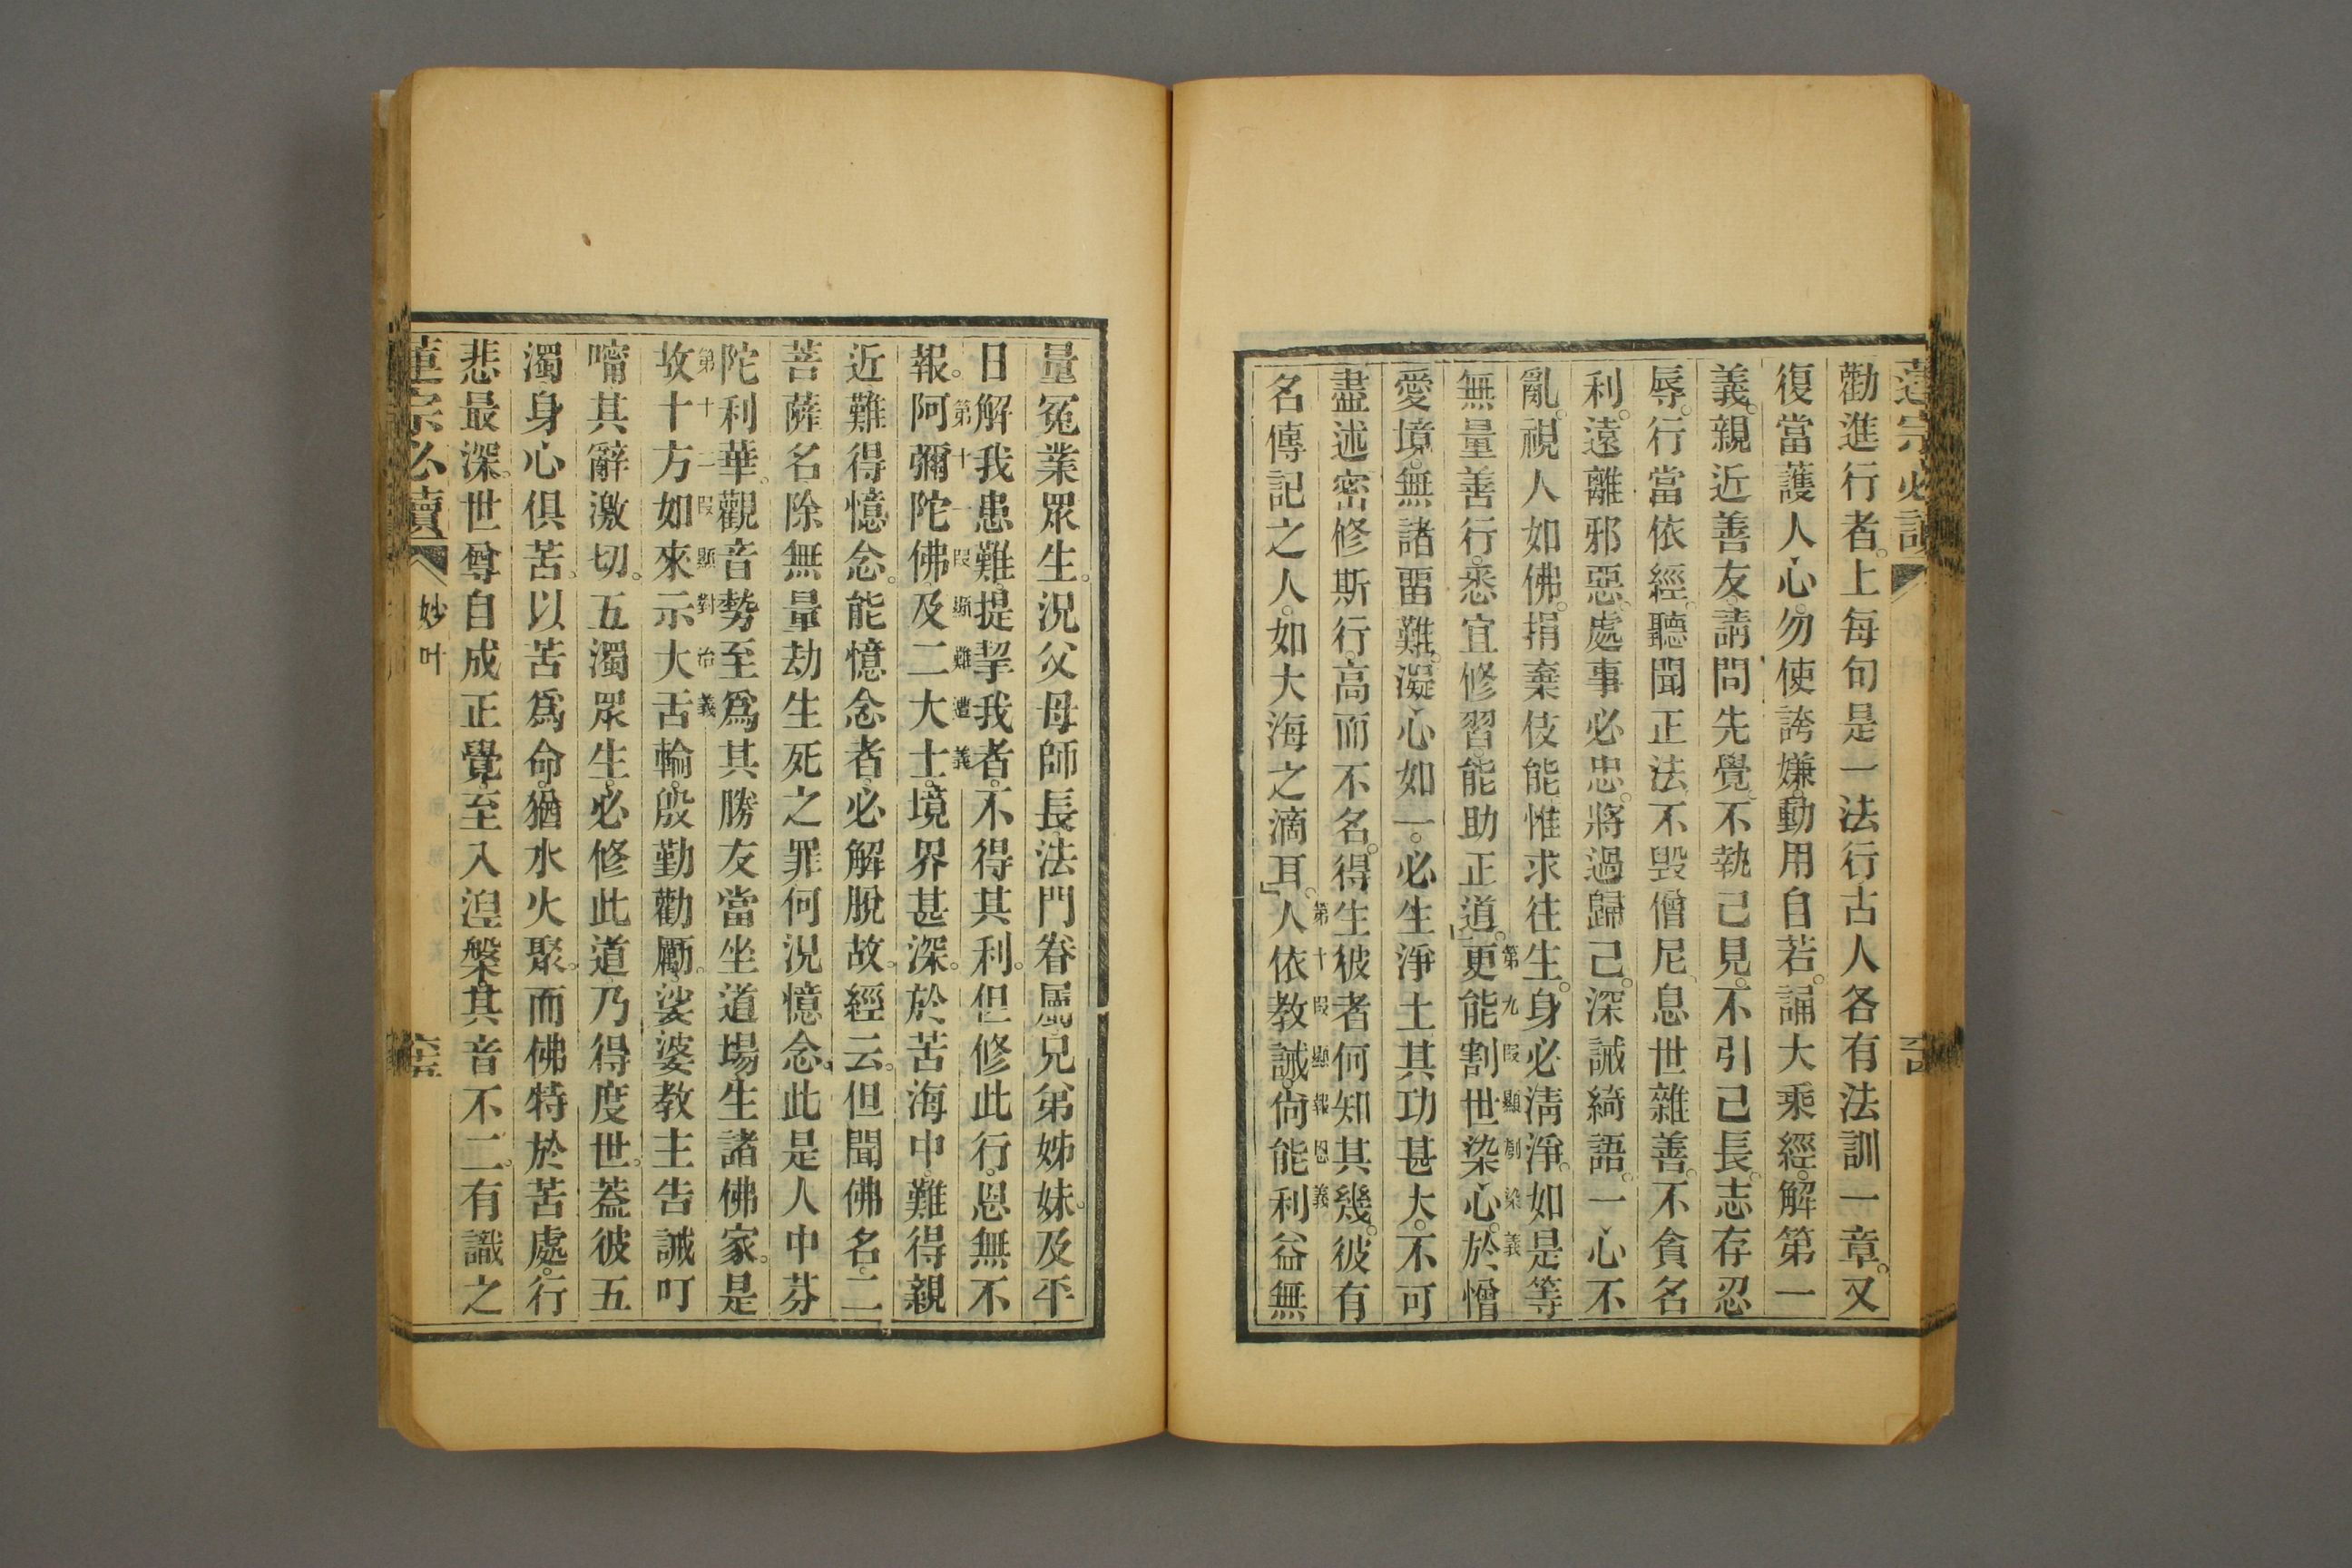 蓮宗必讀
勸進行者。上每句是一法行古人各有法訓一章。又
復當護人心。勿使誇嫌。動用自若。誦大乘經。解第一
義。親近善友。請問先覺。不執己見。不引己長。志存忍
辱。行當依經。聽聞正法。不毀僧尼。息世雜善。不貪名
利。遠離邪惡。處事必忠。將過歸己。深誡綺語。一心不
亂。視人如佛。捐棄伎能。惟求往生。身必淸淨。如是等
第九段顯割染義
無量善行。悉宜修習。能助正道。」更能割世染心。於憎
愛境。無諸畱難。凝心如一。必生淨土。其功甚大。不可
盡述。密修斯行。高而不名。得生彼者。何知其幾。彼有
第十段顯報恩義
名傳記之人。如大海之滴耳。」人依教誡。尙能利益無
量冤業眾生。況父母師長。法門眷屬。兄弟姊妹。及平
日解我患難。提挈我者。不得其利。但修此行。恩無不
第十一段顯難遭義
報。阿彌陀佛及二大士。境界甚深。於苦海中。難得親
近。難得憶念。能憶念者。必解脫故。經云。但聞佛名。二
菩薩名。除無量劫生死之罪。何況憶念。此是人中芬
陀利華。觀音勢至。爲其勝友。當坐道場。生諸佛家。是
第十二段顯對治義
故十方如來。示大舌輪。殷勤勸勵。娑婆教主。告誡叮
嚀。其辭激切。五濁眾生。必修此道。乃得度世。葢彼五
濁。身心俱苦。以苦爲命。猶水火聚。而佛特於苦處。行
悲最深。世尊自成正覺。至入湼槃。其音不二。有識之
蓮宗必讀 妙叶